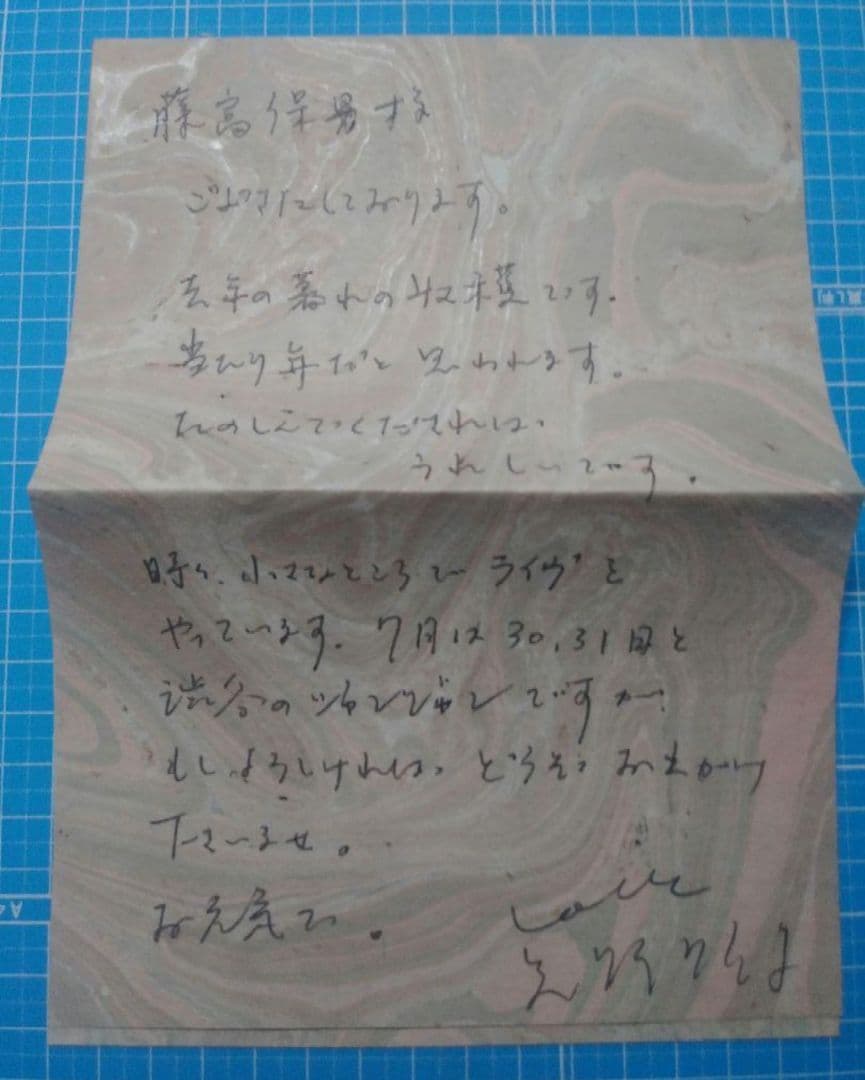 藤富保男様
ごぶさたしております。
去年の暮れの収穫です。
当たり年だと思われます。
たのしんでくだされば、
うれしいです。
時々、小さなところでライヴを
やっています。7月は30,31日と
渋谷のジァンジァンですが
もし、よろしければ、どうぞおでかけ
下さいませ。
お元気で。
A4